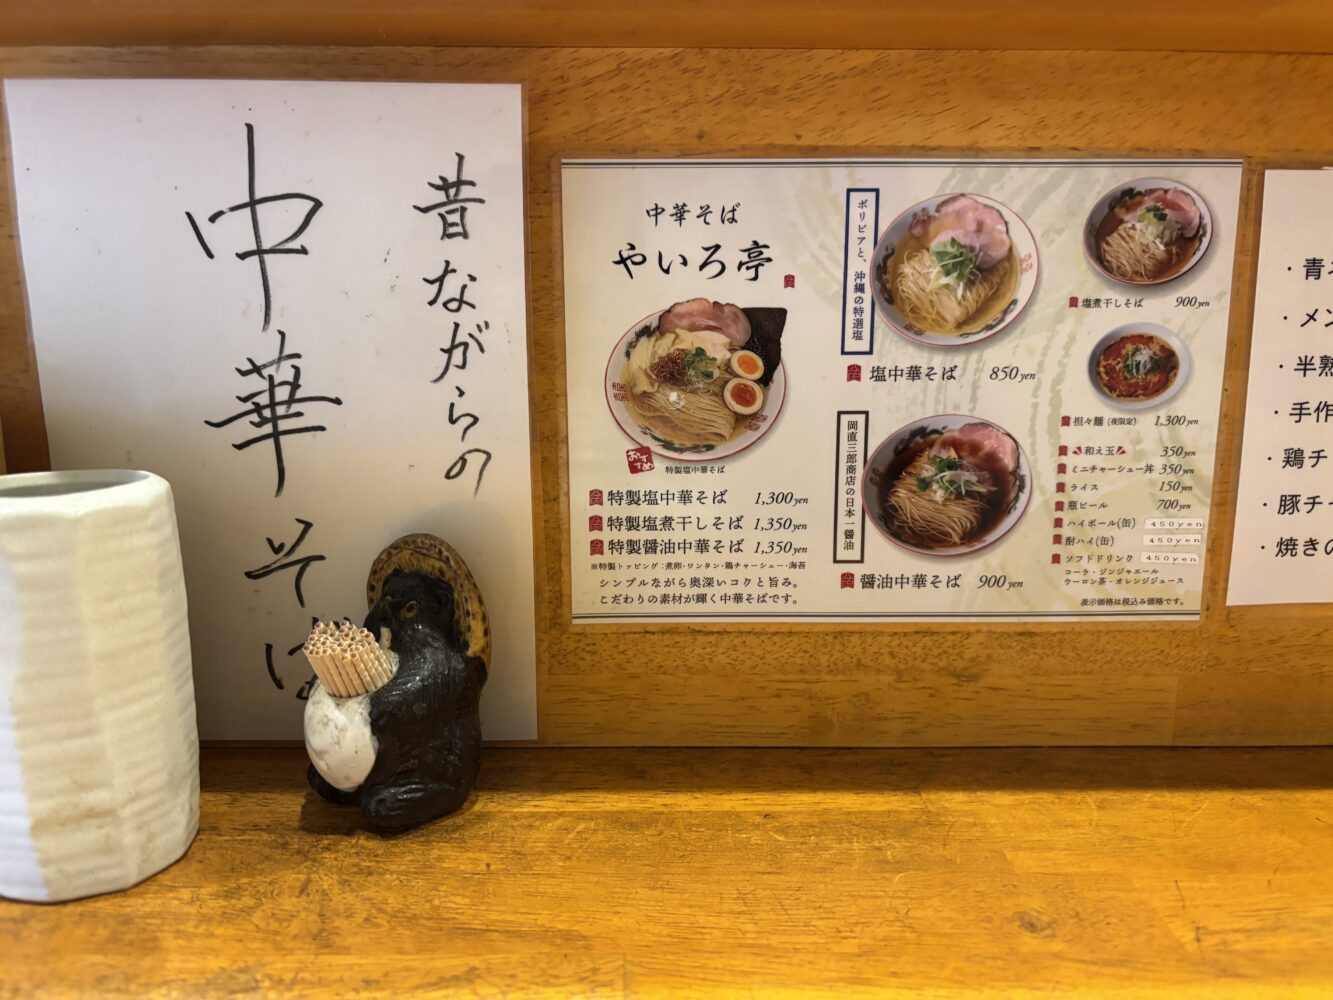 昔ながらの
中華そば
中華そば
やいろ亭
おすすめ
特製塩中華そば
特製塩中華そば 1,300yen
特製塩煮干しそば 1,350yen
特製醤油中華そば 1,350yen
※特製トッピング:煮卵・ワンタン・鶏チャーシュー・海苔
シンプルながら奥深いコクと旨み。
こだわりの素材が輝く中華そばです。
ボリビアと、沖縄の特選塩
塩中華そば 850yen
岡直三郎商店の日本一醤油
醤油中華そば 900yen
塩煮干しそば 900yen
担々麺(夜限定) 1,300yen
和え玉 350yen
ミニチャーシュー丼 350yen
ライス 150yen
瓶ビール 700yen
ハイボール(缶) 450yen
酎ハイ(缶) 450yen
ソフトドリンク 450yen
コーラ・ジンジャエール
ウーロン茶・オレンジジュース
表示価格は税込み価格です。
・青
・メン
・半熟
・手作
・鶏チ
・豚チ
・焼き